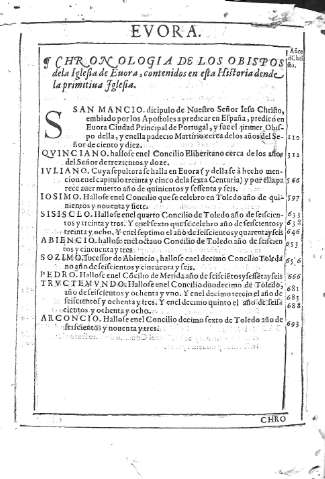 EVORA.
Años
de Chri
sto.
¶ CHRONOLOGIA DE LOS OBISPOS
de la Iglesia de Euora, contenidos en esta Historia dende
la primitiua Iglesia.
SAN MANCIO. dicipulo de Nuestro Señor Iesu Christo,
embiado por los Apostoles a predicar en España, predicó en
Euora Ciudad Principal de Portugal, y fue el primer Obis-
po della, y en ella padecio Martirio cerca de los años del Se-
ñor de ciento y diez. 110
QVINCIANO. hallose en el Concilio Eliberitano cerca de los años 312
del Señor de trezientos y doze.
IVLIANO. Cuya sepultura se halla en Euora (y della se à hecho men-
cion en el capitulo treinta y cinco de la sexta Centuria) y por ella pa- 566
rece auer muerto año de quinientos y sessenta y seis.
IOSIMO. Hallose en el Concilio que se celebro en Toledo año de qui- 597
nientos y nouenta y siete.
SISISCLO. Hallose en el quarto Concilio de Toledo año de seiscien- 633
tos y treinta y tres. Y en el sexto que se celebro año de seiscientos y 638
treinta y ocho. Y en el septimo el año de seiscientos y quarenta y seis 646
ABIENCIO. hallose en el octauo Concilio de Toledo año de seiscien- 653
tos y cincuenta y tres.
SOZIMO. Sucessor de Abiencio, hallose en el decimo Concilio Toleda 656
no año de seiscientos y cincuenta y seis.
PEDRO. Hallose en el Cócilio de Merida año de seisciétos y sesséta y seis 666
TRVCTEMVNDO. Hallose en el Concilio duodecimo de Toledo, 681
año de seiscientos y ochenta y vno. Y en el decimo tercio el año de 683
seiscientos y ochenta y tres. Y en el decimo quinto el año de seisci 688
entos y ochenta y ocho.
ARCONCIO. Hallose en el Concilio decimo sexto de Toledo año de 693
seiscientos y nouenta y tres.
CHRO